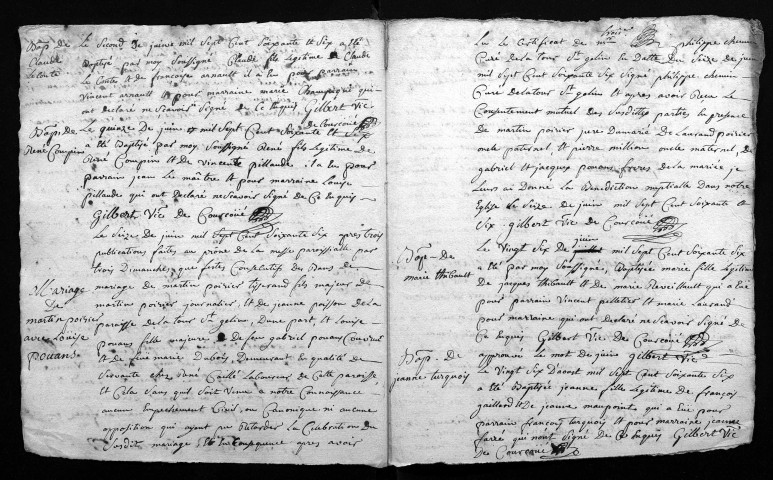 Bap. de
Claude
Le Conte
Le Second de juin mil Sept Cent Soixante et Six a été
Baptisé par moy Soussigné Claude fils legitime de Claude
Le Conte et de francoise arnault il a eu pour parrain
Vincent arnault et pour marraine marie Champigné qui
ont declaré ne Sçavoir Signé de Ce Enquis Gilbert Vic
de Courcoué
Bap. de
René Coupin
Le quinze de juin mil Sept Cent Soixante et Six
a été Baptisé par moy Soussigné René fils Legitime de
René Coupin et de Vincente pillaude il a eu pour
parrain jean Le maître et pour marraine Louise
pillaude qui ont Declaré ne Scavoir Signé de Ce Enquis
Gilbert Vic. de Courcoué
Mariage
De
martin poirier
avec Louise
pouans
Le Seize de juin mil Sept Cent Soixante Six apres trois
publications faites au prône de la messe paroissialle par
trois Dimanches que festes Consecutifs des Bans de
mariage de martin poirier tisserand fils majeur de
martin poirier journalier, et de jeanne poisson de la
paroisse de la tour St. gelin, Dune part, et Louise
pouans fille majeure De feu gabriel pouans
et de feue marie Dubois, Demeurant En qualité de
Servante chez René Caillé Laboureur de Cette paroisse,
et Cela Sans quil Soit Venu a notre Connoissance
aucun Empechement Civil, ou Canonique ni aucune
opposition qui ayent pu Retarder la Celebration du
Susdit mariage En Consequence apres avoir
trois
Lu le Certificat de mre philippe chemin
Curé de la tour St. gelin En Datte du Seize de juin
mil Sept Cent Soixante Six Signé philippe chemin
Curé de la tour St. gelin et apres avoir Receu Le
Consentement mutuel des Susdittes parties En presence
de martin poirier pere Du marié de Laurand poirier
oncle paternel, et pierre million oncle maternel, de
gabriel et jacques pouans freres de la mariée je
Leurs ai Donné La Benediction nuptialle Dans notre
Eglise le Seize de juin mil Sept Cent Soixante et
Six. gilbert Vic de Courcoué
Bap. de
marie Thibault
juin
Le Vingt Six De juillet mil Sept Cent Soixante Six
a été par moy Soussigné, Baptisée marie fille Legitime
de jacques thibault et de marie Reveillault qui a Eue
pour parrain Vincent pelletier et marie Laurand
pour marraine qui ont declaré ne Scavoir Signé de
Ce Enquis Gilbert Vic De Courcoué
approuvé Le mot de juin gilbert Vic
Bap. de
jeanne turquois
Le Vingt Six D'aoust mil Sept Cent Soixante Six
a été Baptisée jeanne fille Legitime de françois
gaillard et De jeanne maupoint qui a Eue pour
parrain françois turquois et pour marraine jeanne
faré qui nont Signé De Ce Enquis Gilbert Vic
De Courcoué